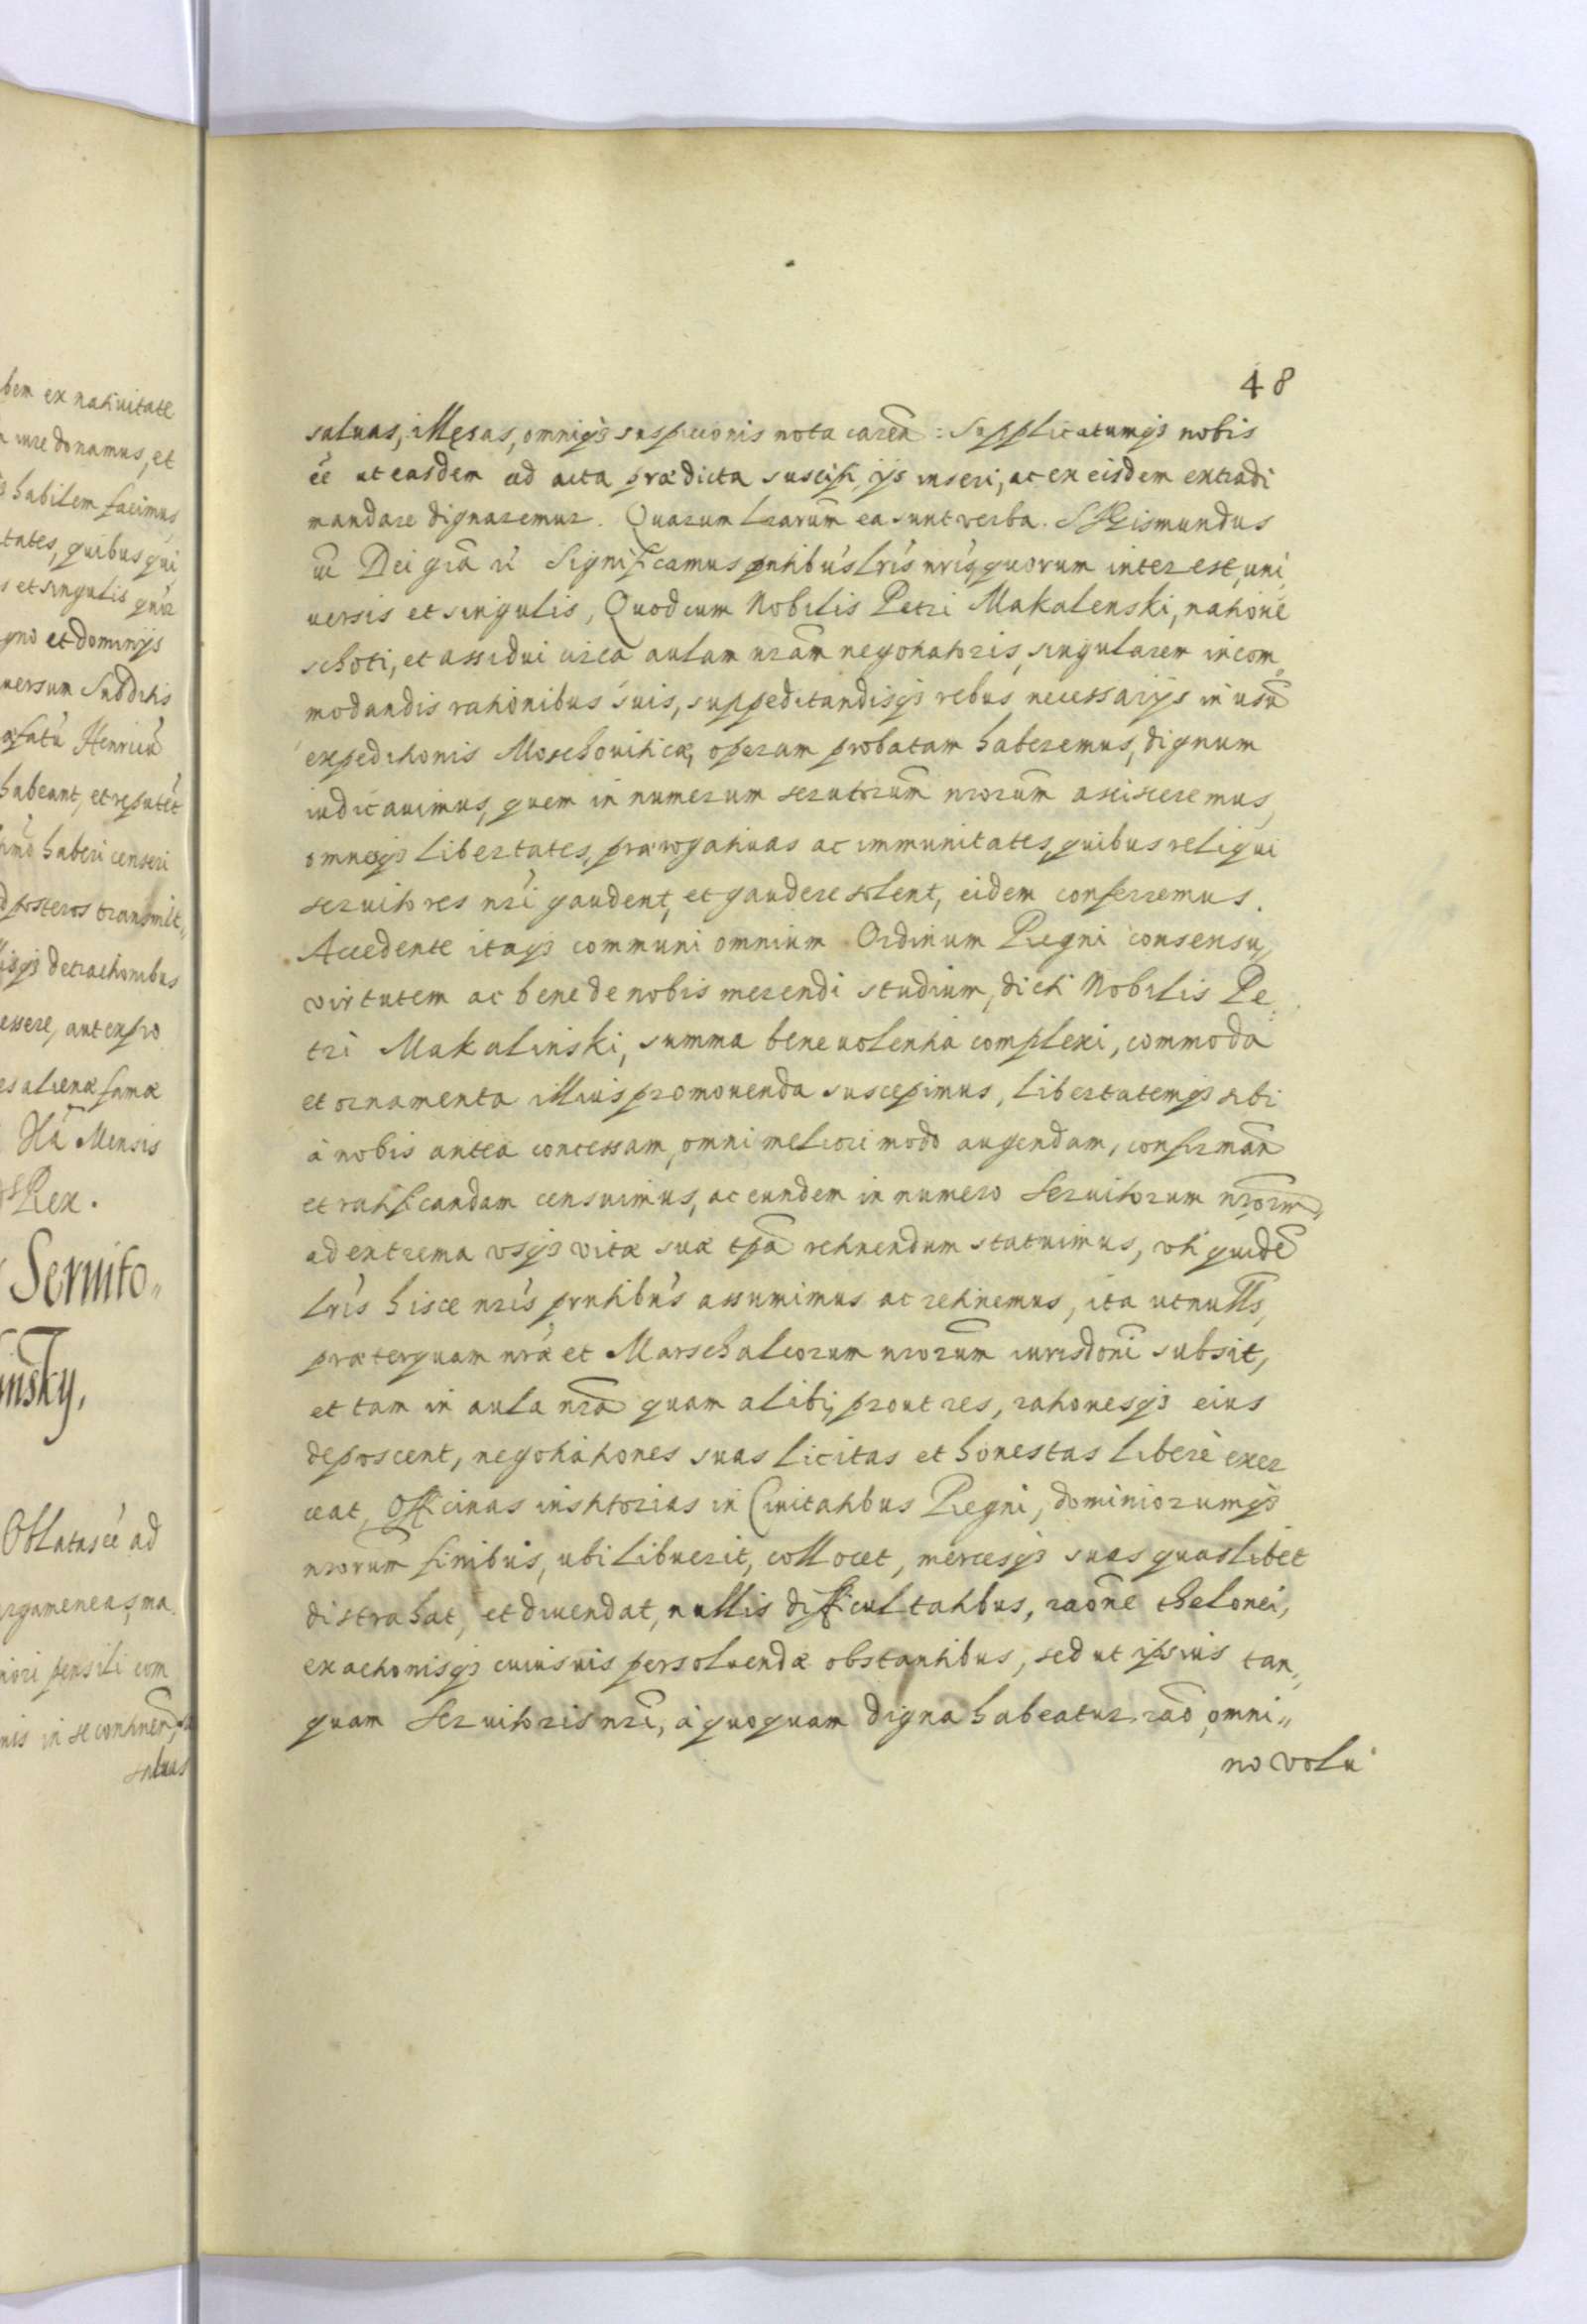 bem ex natiuitate
iure donamus, et
habilem facimus,
tates, quibus qui
s et singulis
gno et dominijs
uersum Subditis
Henricū
habeant, et reputēt
haberi censeri
posteros transmit„
detractionibus
essere, aut expro
es alienæ famæ
Mensis
Rex.
Seruito„
insky,
Oblatas ēe ad
rgameneas, ma
niori pensili com
nis in se continen
saluas
48
saluas, illęsas, omniq̃ suspicionis nota careñ: Supplicatumq̃ nobis
ēe ut easdem ad acta prædicta suscipi, ijs inseri, ac ex eisdem extradi
mandare dignaremur. Quarum lrarum̃ ea sunt verba. SIGismundus
iii Dei grã rč Significamus pntibus lris nris, quorum interest, uni
uersis et singulis, Quod cum Nobilis Petri Makalenski, natione
schoti, et assidui circa aulam nram̃ negotiatoris, singularem in com„
modandis rationibus suis, suppeditandisq̃ rebus necessarijs in usũ
expeditionis Moschouiticæ, operam probatam haberemus, dignum
iudicauimus, quem in numerum seruitorum̃ nrorum̃ ascisceremus,
omnesq̃ libertates, prærogatiuas ac immunitates, quibus reliqui
seruitores nri gaudent, et gaudere solent, eidem conferremus.
Accedente itaq̃ communi omnium Ordinum Regni consensu,
virtutem ac bene de nobis merendi studium, dicti Nobilis Pe„
tri Makalinski, summa beneuolentia complexi, commoda
et ornamenta illius promouenda suscepimus, libertatemq̃ sibi
à nobis antea concessam, omni meliori modo augendam, confirmañ
et ratificandam censuimus, ac eundem in numero Seruitorum nrorum̃
ad extrema vsq̃ vitæ suæ tpã retinendum statuimus, vti quidẽ
lris hisce nris pntibus assumimus ac retinemus, ita ut nulli,
præterquam nræ et Marschalcorum nrorum̃ iurisdoni subsit,
et tam in aula nrã quam alibi, prout res, rationesq̃ eius
deposcent, negotiationes suas licitas et honestas liberè exer
ceat, Officinas institorias in Ciuitatibus Regni, dominiorumq̃
nrorum̃ finibus, ubi libuerit, collocet, mercesq̃ suas quaslibet
distrahat, et diuendat, nullis difficultatibus, raõne thelonei,
exactionisq̃ cuiusuis persoluendæ obstantibus, sed ut ipsius tan„
quam Seruitoris nri, à quoquam digna habeatur raõ, omni„
no volu